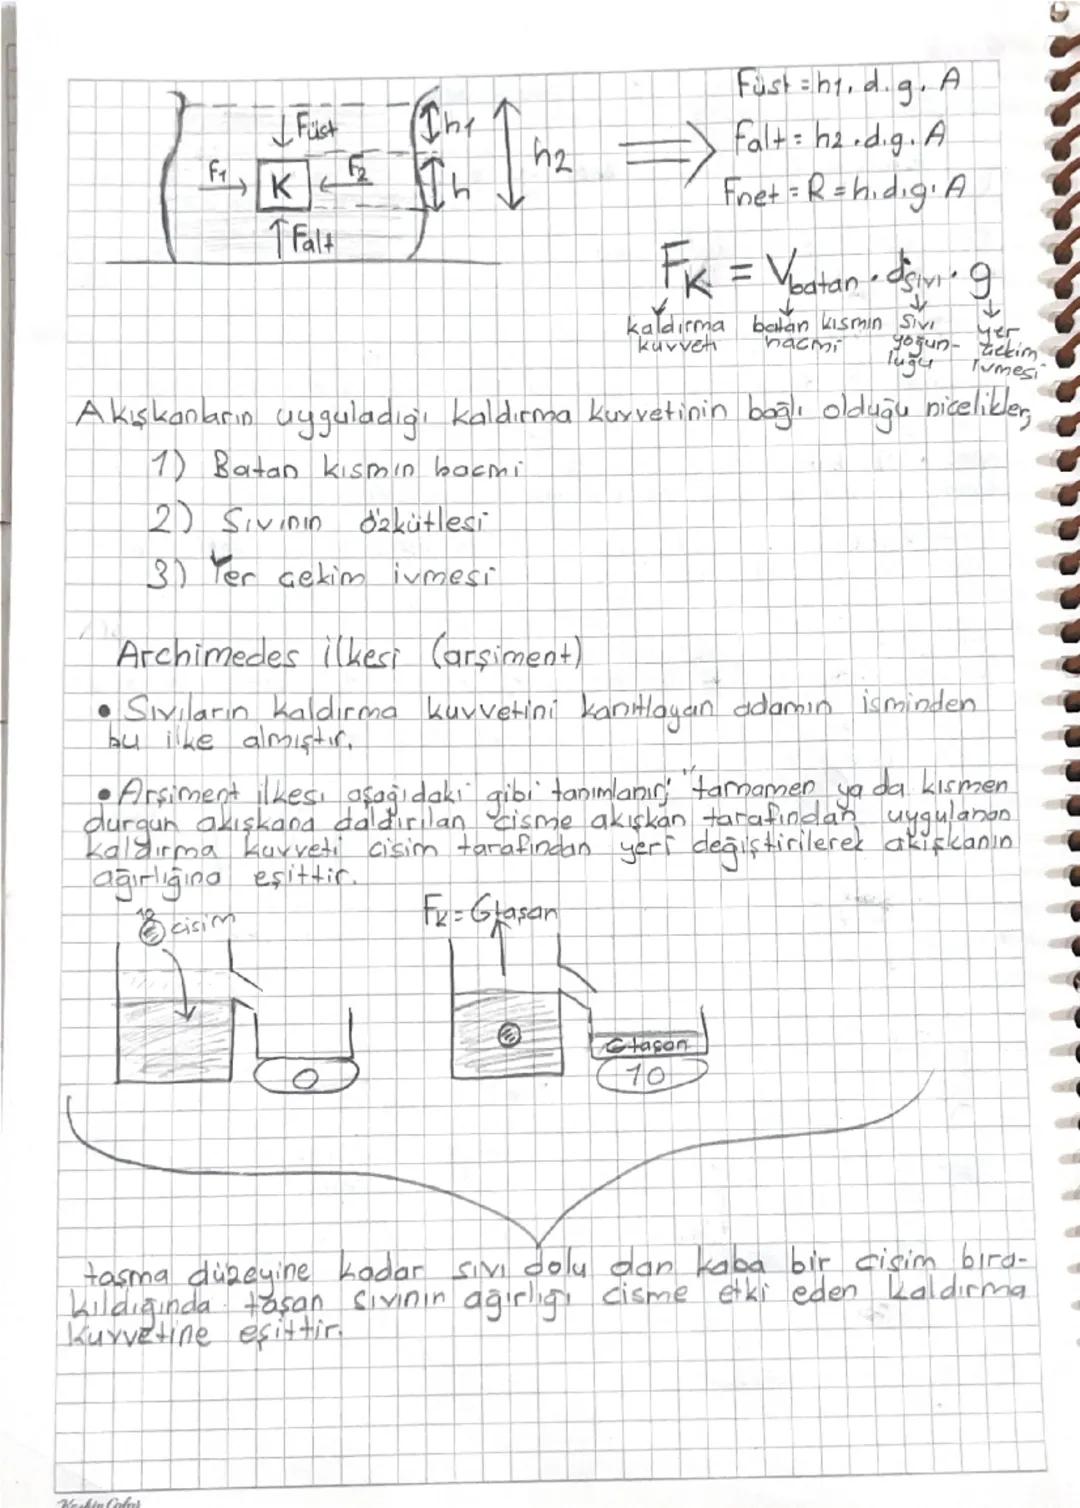 Füst = h1. d. g. A
Füst
h1
h2
Falt = h2 . d. g. A
F1
K
F2
h
Fnet = R = h. d. g. A
Falt
FK = Vbatan . dsıvı . g
kaldırma kuvveti
batan kısmın hacmi
sıvı yoğun-luğu
yer çekim ivmesi
Akışkanların uyguladığı kaldırma kuvvetinin bağlı olduğu nicelikler;
1) Batan kısmın hacmi
2) Sıvının özkütlesi
3) Yer çekim ivmesi
Archimedes ilkesi (arşiment)
• Sıvıların kaldırma kuvvetini kanıtlayan adamın isminden
bu ilke almıştır.
• Arşiment ilkesi aşağıdaki gibi tanımlanır; "tamamen ya da kısmen
durgun akışkana daldırılan cisme akışkan tarafından uygulanan
kaldırma kuvveti cisim tarafından yeri değiştirilerek akışkanın
ağırlığına eşittir.
cisim
FK = Gtaşan
0
Gtaşan
10
taşma düzeyine kadar sıvı dolu olan kaba bir cisim bıra-
kıldığında taşan sıvının ağırlığı cisme etki eden kaldırma
kuvvetine eşittir.